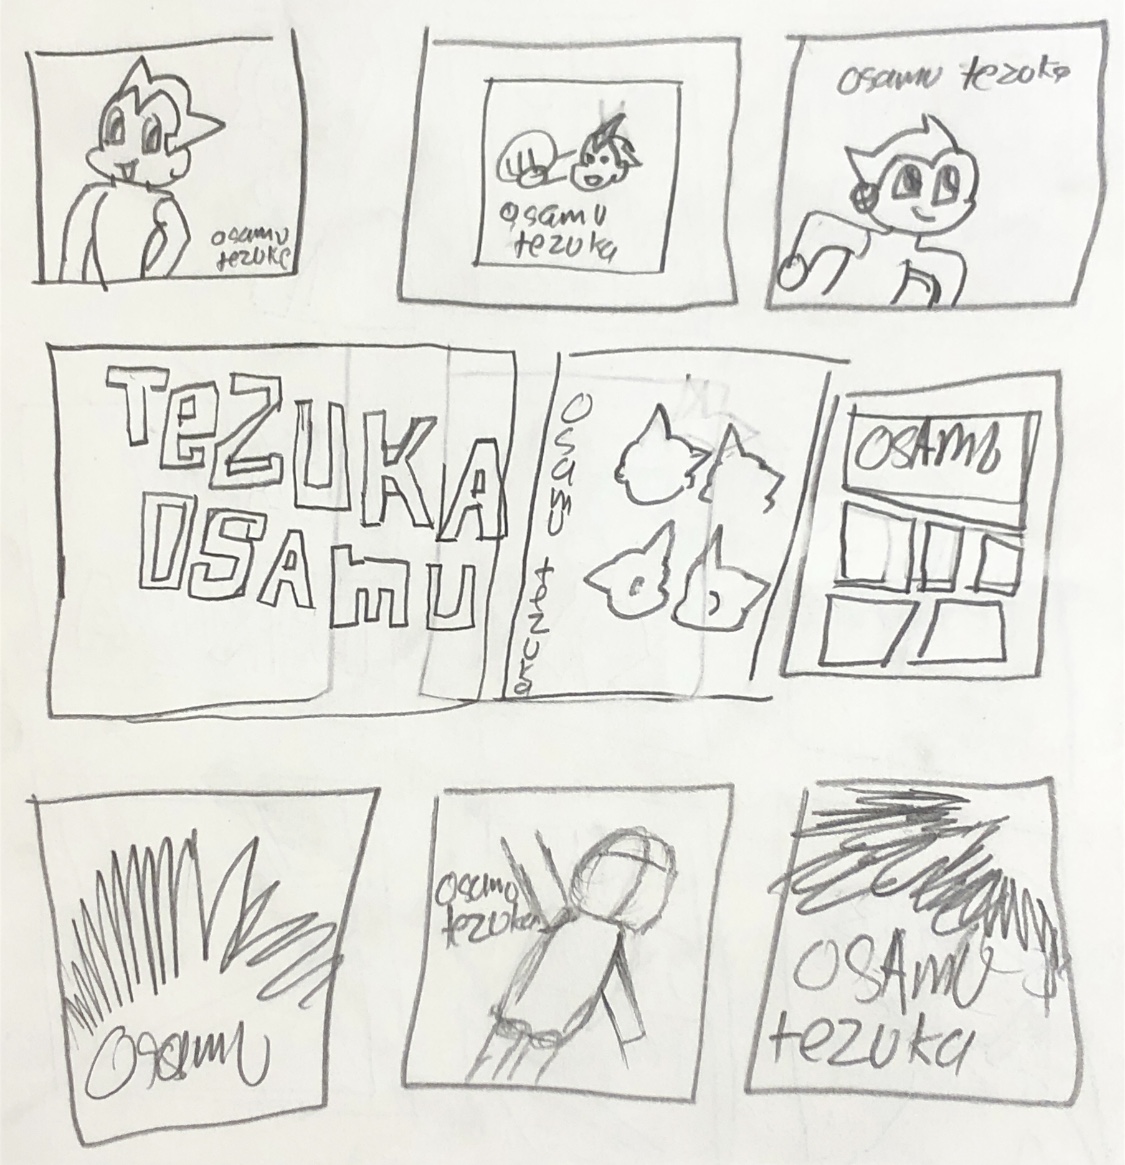 osamu
tezuka
osamu
tezuka
osamu tezuka
TeZUKA
OSAmU
osamu tezuka
OSAMU
Osamu
osamu
tezuka
OSAmU
tezuka